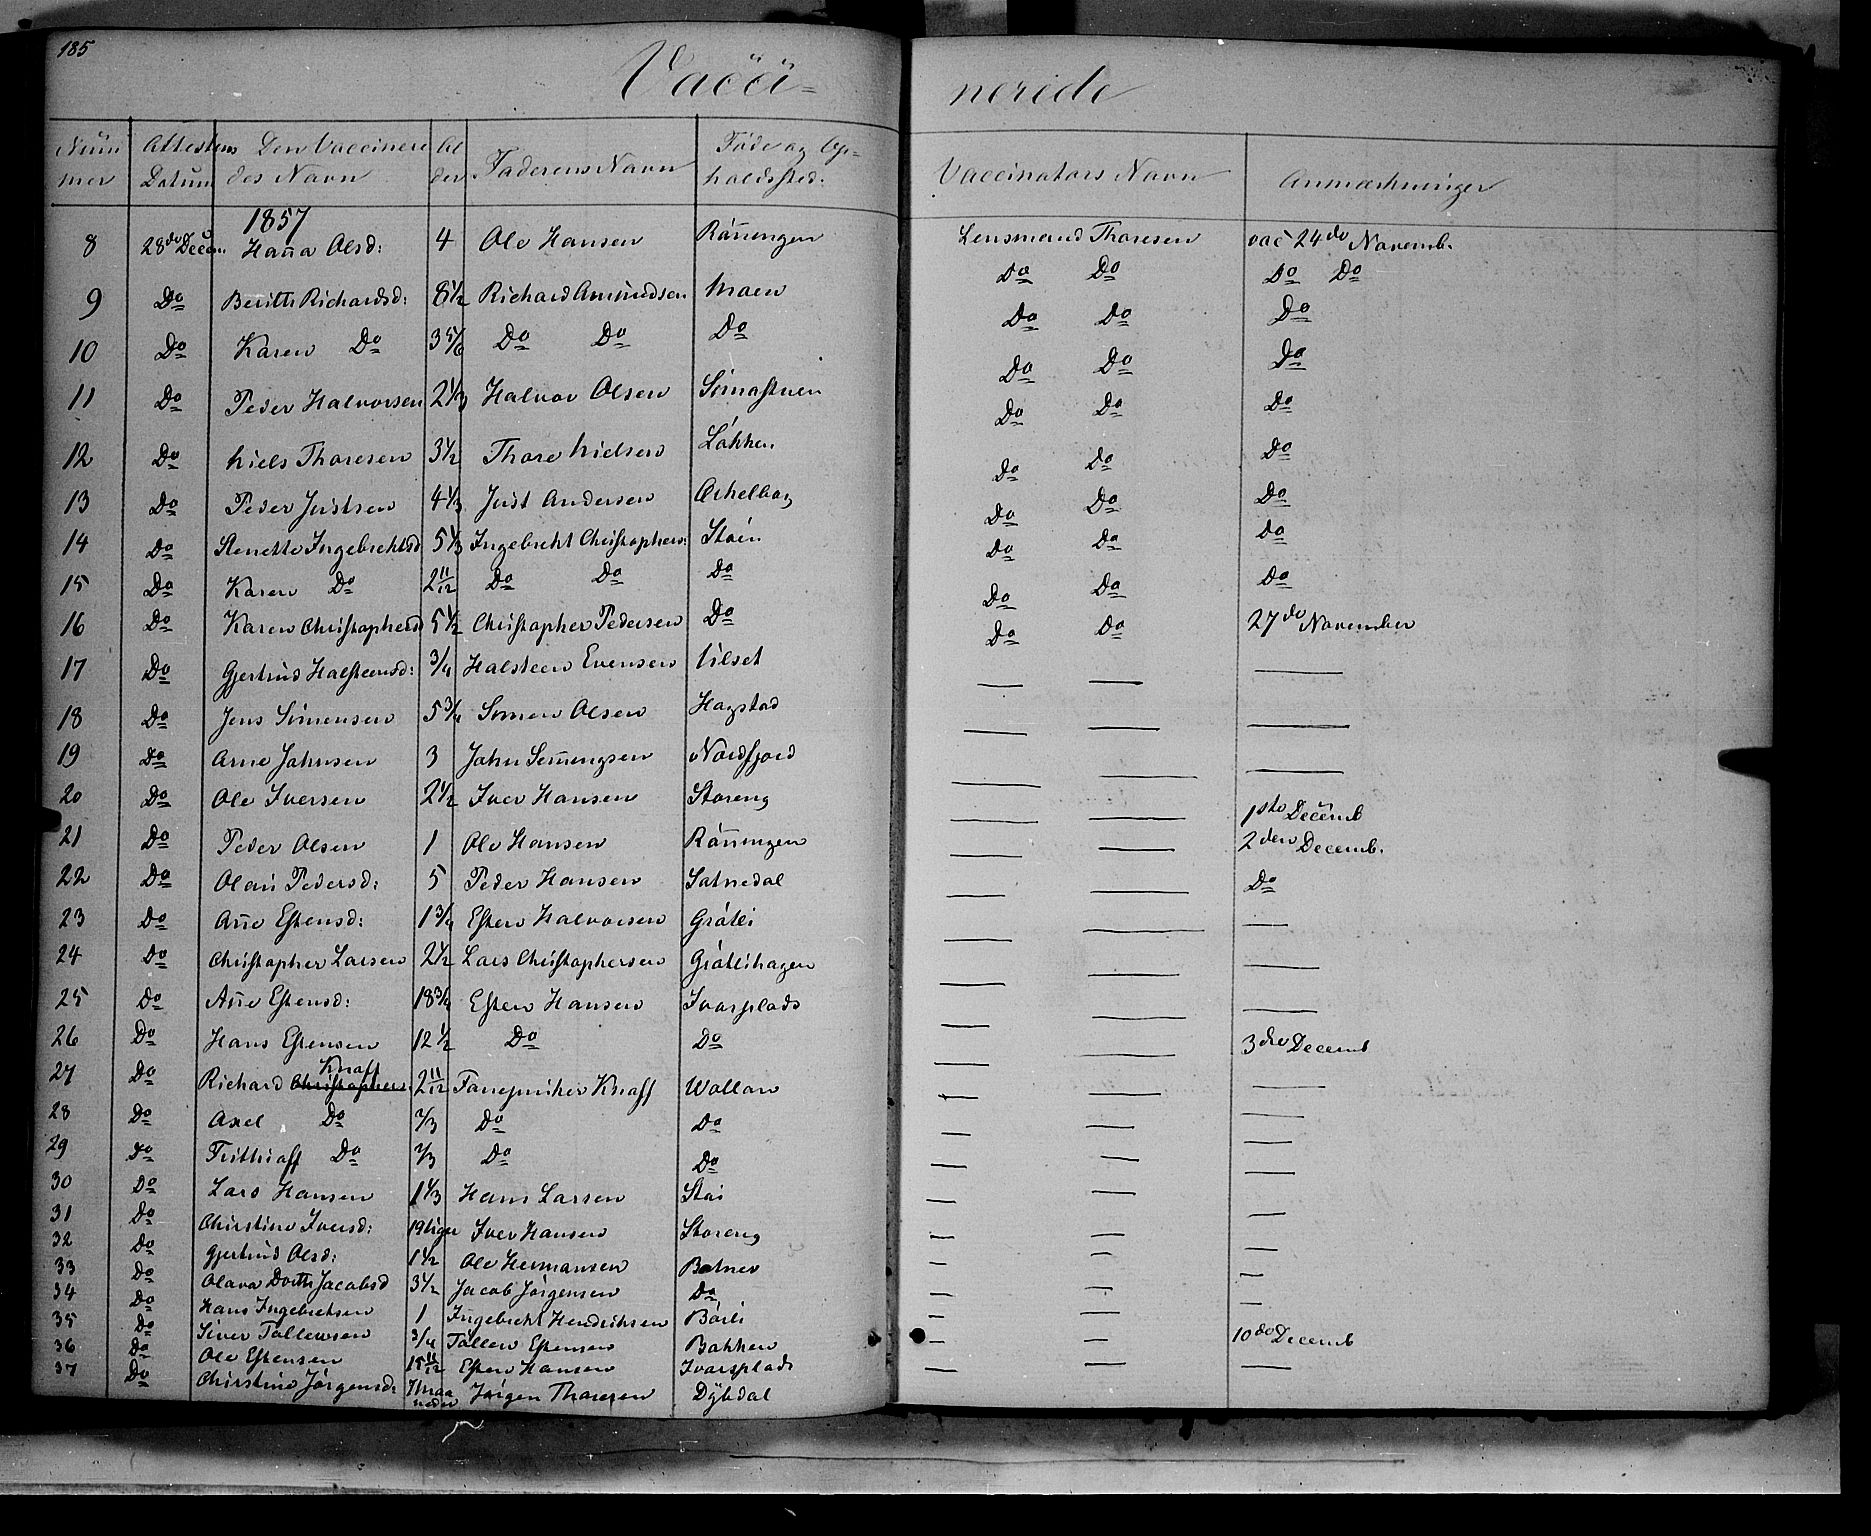 185
Vacci- neride
Num mer | Attestens Datum | Den Vaccinere des Navn | Al der | Faderens Navn | Føde og Op- holdssted: | Vaccinators Navn | Anmærkninger
1857
8 28de Decem. Hanna Olsd: 4 Ole Hansen Rönningen Lensmand Thoresen vac 24de Novemb.
9 Do Beritte Richardsd: 8 1/2 Richard Amundsen Moen Do Do Do Do
10 Do Karen Do 3 5/6 Do Do Do Do Do Do
11 Do Peder Halvorsen 2 1/3 Halvor Olsen Simastuen Do Do Do
12 Do Niels Thoresen 3 1/2 Thore Nielsen Løkken Do Do Do
13 Do Peder Justsen 4 1/3 Just Andersen Do Do Do
14 Do Stenette Ingebrektsd 5 1/3 Ingebrekt Christophers: Støen Do Do Do
15 Do Karen Do 2 11/12 Do Do Do Do Do Do
16 Do Karen Christophersd 5 1/2 Christopher Pedersen Do Do Do Do
17 Do Gjertrud Halsteensd: 3/4 Halsteen Evensen Do Do 27de November
18 Do Jens Simensen 5 3/4 Simen Olsen Hagstad — — —
19 Do Arne Johnsen 3 John Semmengsen Nordfjord — — —
20 Do Ole Iversen 2 1/2 Iver Hansen Storeng — — —
21 Do Peder Olsen 1 Ole Hansen Rönningen — — 1ste Decemb
22 Do Olau Pedersd: 5 Peder Hansen — — 2den Decemb.
23 Do Anne Estensd: 1 3/4 Esten Halvorsen Gråtli — — Do
24 Do Christopher Larsen 2 1/2 Lars Christophersen Gråtlihagen — — —
25 Do Anne Estensd: 18 3/4 Esten Hansen Ivarsplads — — —
26 Do Hans Estensen 12 1/2 Do Do — — —
27 Do Richard Christophers: Knaff 2 11/12 Fanejunker Knaff Wollan — — 3die Decemb
28 Do Axel Do 2/3 Do Do — — —
29 Do Frithioff Do 2/3 Do Do — — —
30 Do Lars Hansen 1 1/3 Hans Larsen Stai — — —
31 Do Christine Iversd: Iver Hansen Storeng — — —
32 Do Gjertrud Olsd: 1 1/2 Ole Hermansen Botnen — — —
33 Do Olava Dorth Jacobsd 3 1/2 Jacob Jørgensen Do — — —
34 Do Hans Ingebrektsen 1 Ingebrekt Hendriksen Børli — — —
35 Do Siver Tollewsen 3/4 Tollew Estensen Bakken — — —
36 Do Ole Estensen 15 11/12 Esten Hansen Ivarsplads — — 10de Decemb
37 Do Christine Jørgensd: 7 Maa neder Jørgen Thoresen Dybdal — — —